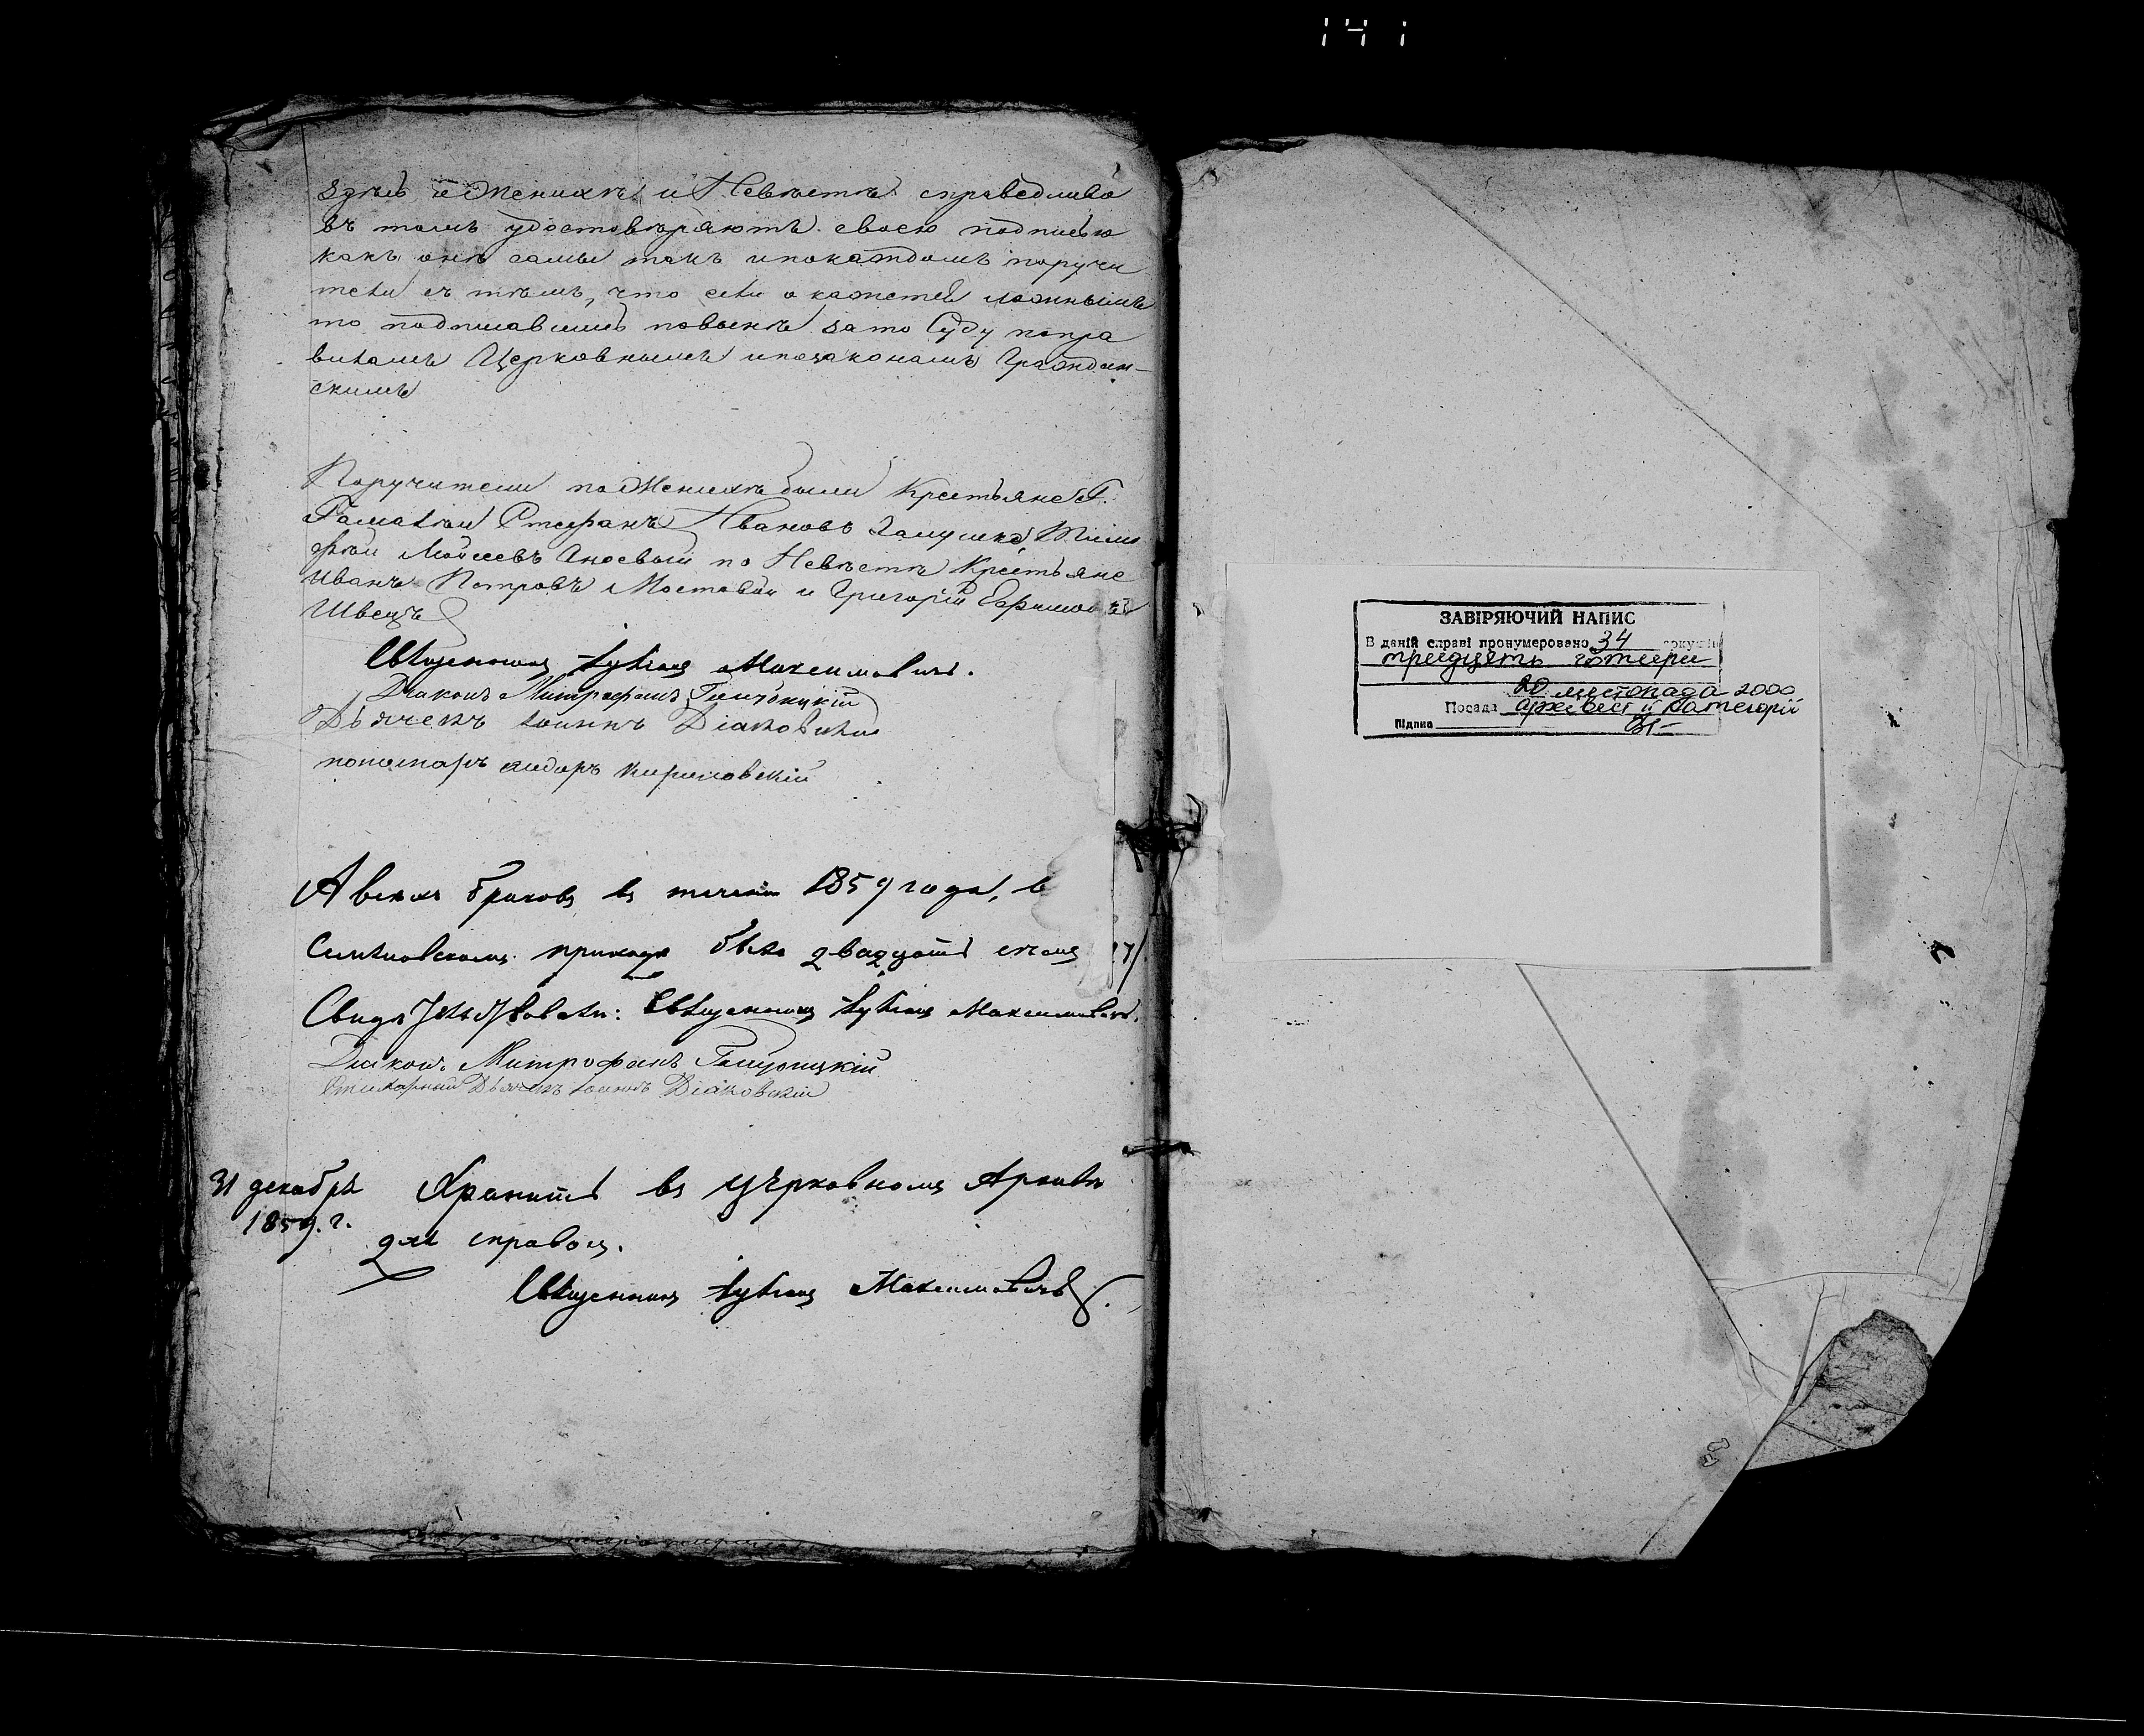 141
здѣсь о Женихѣ и Невѣстѣ справедливо
въ томъ удостовѣряютъ своею подписью
какъ онѣ самы такъ и покаждомъ поручи
тели съ тѣмъ, что если окажется ложнымъ
то подписавшись повыненъ зато Суду попра
виламъ Церковнымъ и позаконамъ Граждан-
скимъ
Поручители по Женихѣ были Крестьяне Г.
Стефанъ Ивановъ Тимо
фѣй Мойсеевъ по Невѣстѣ Крестьяне
Иванъ Петровъ Мостовой и Григорій Ефимовъ
Швецъ
Священникъ Максимовичъ.
Діаконъ Митрофанъ
Дьячекъ Іоаннъ Діаковскій
пономарь Сидоръ Кириловскій
А всехъ браковъ въ теченіи 1859 года, в
приходѣ было двадцать семь 27/
Свидѣтельствовали: Священникъ Максимовичъ.
Діаконъ Митрофанъ
Дьячекъ Іоаннъ Діаковскій
31 декабря Хранить въ церковномъ Архивѣ
1859. г.
для справокъ.
Священникъ Максимовичъ.
ЗАВІРЯЮЧИЙ НАПИС
В даній справі пронумеровано 34
тридцять чотири
20 листопада 2000
Посада архівіст II категорії
Підпис